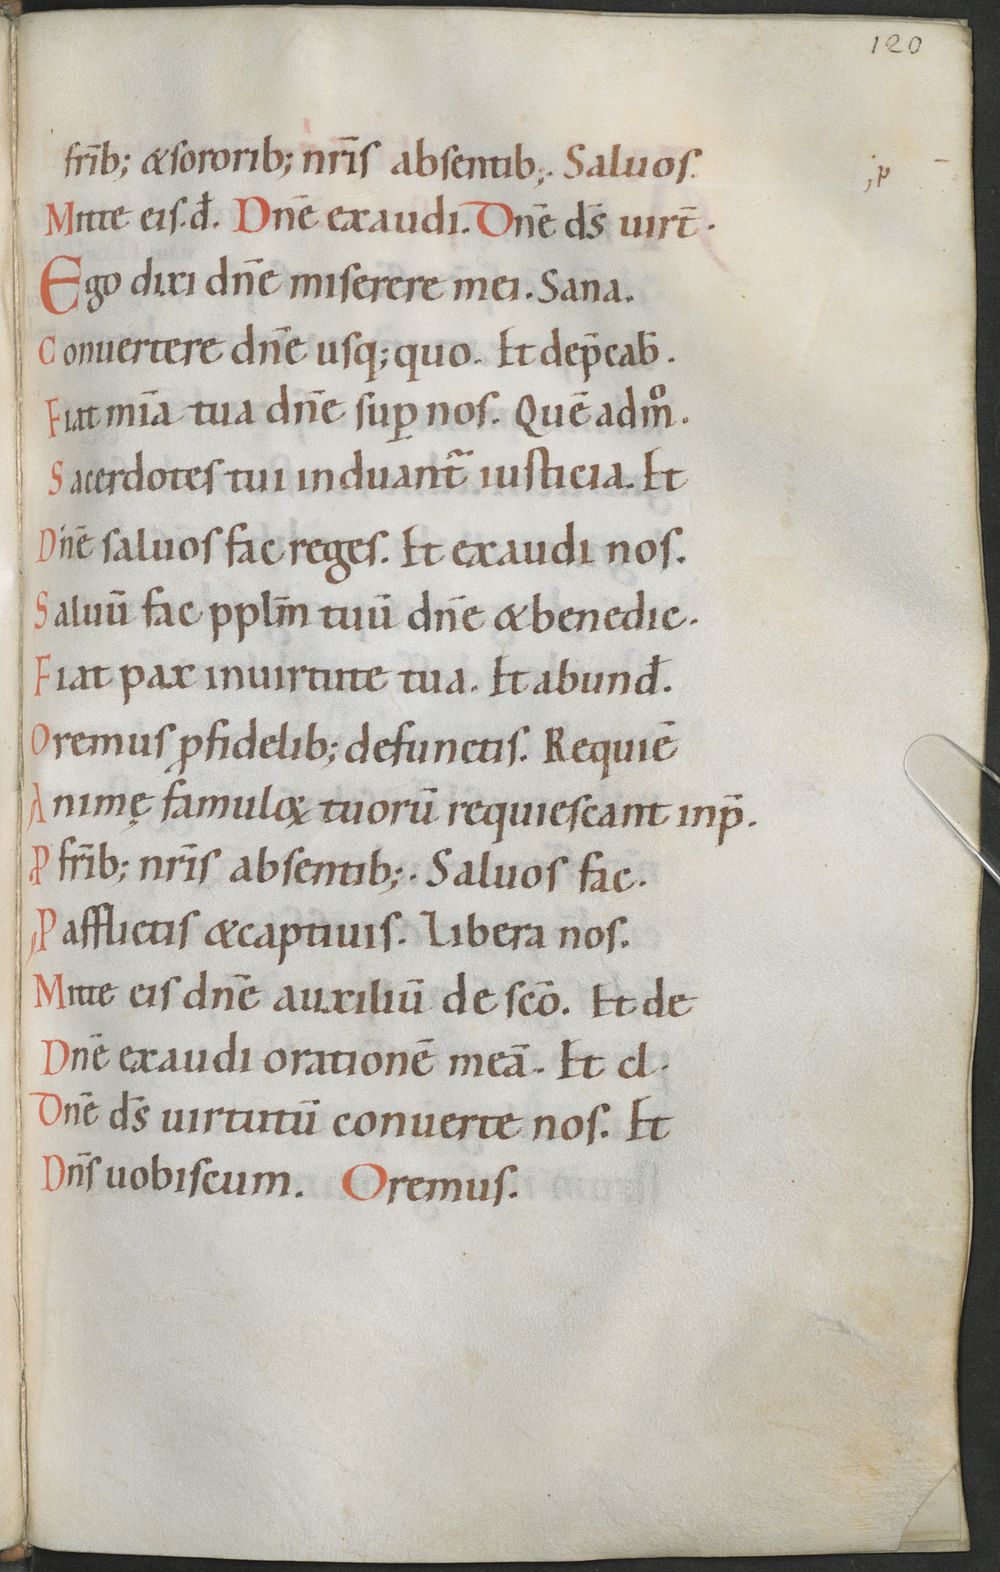 120
fr̄ib; &sororib; nr̄is absentib;. Saluos.
;p
Mitte eis. đ. Dn̄e exaudi. Dn̄e ds̄ uirt̄.
Ego dixi dn̄e miserere mei. Sana.
Conuertere dn̄e usq; quo. Et dep̄cab̄.
Fiat mīa tua dn̄e suꝑ nos. Quē adm̊.
Sacerdotes tui induant᷑ iusticia. Et
Dn̄e saluos fac reges. Et exaudi nos.
Saluū fac pplm̄ tuū dn̄e &benedic.
Fiat pax inuirtute tua. Et abunđ.
Oremus ꝓfidelib; defunctis. Requiē
Animę famuloꝝ tuorū requiescant inp̄.
ꝓ fr̄ib; nr̄is absentib;. Saluos fac.
ꝓ afflictis &captiuis. Libera nos.
Mitte eis dn̄e auxiliū de scō. Et de
Dn̄e exaudi orationē meā. Et cl.
Dn̄e ds̄ uirtutū conuerte nos. Et
Dn̄s uobiscum. Oremus.